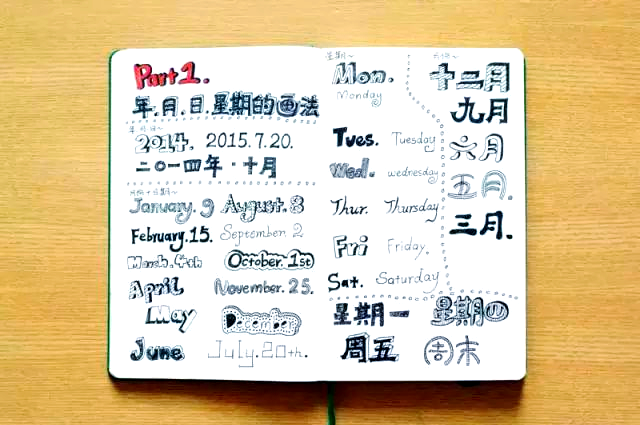 Part 1.
年.月.日.星期的画法
年.月.日~
2014. 2015.7.20.
二〇一四年·十月
January.9 August.8
February.15. September.2
March.4th October.1st
April November.25.
May December
June July.20th.
星期~
Mon.
Monday
Tues. Tuesday
Wed. wednesday
Thur. Thursday
Fri Friday.
Sat. Saturday
十二月
九月
六月
五月.
三月.
星期一 星期四
周五 周末